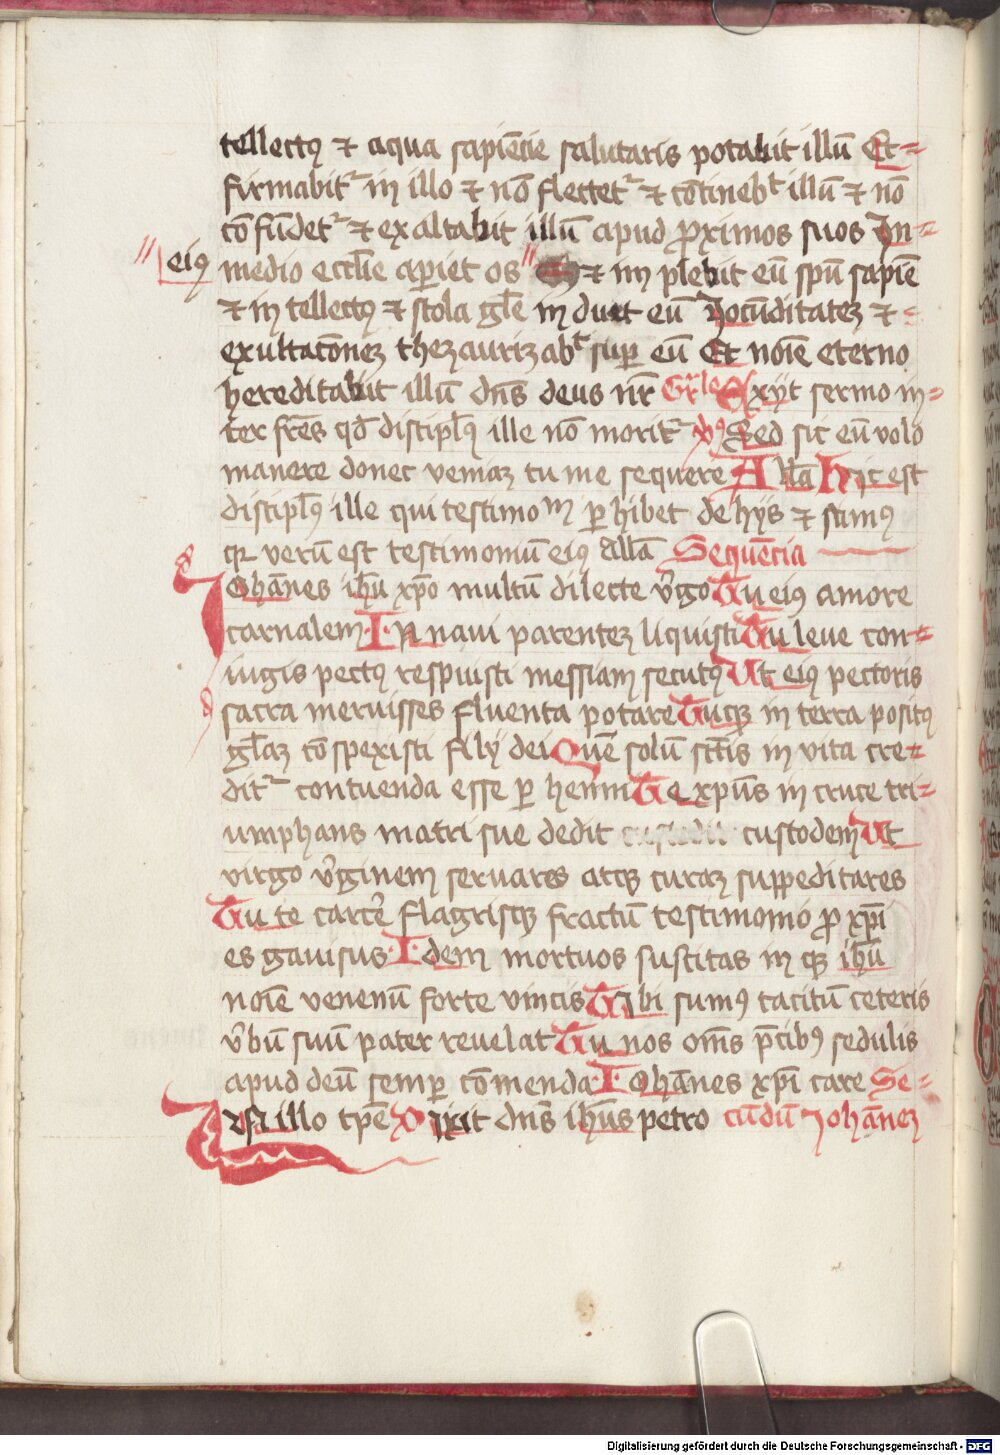 tellectꝰ ⁊ aqua sapiēcie salutaris potabit illū Et=
firmabitᷣ in illo ⁊ nō flectetᷣ ⁊ cōtinebᷣt illū ⁊ nō
cōfūdetᷣ ⁊ exaltabit illū apud ꝓximos suos In=
eiꝰ
medio ecclīe apiet os ⁊ implebit eū spū sapiēe
⁊ intellectꝰ ⁊ stola glīe induet eū Jocūditatez ⁊=
exultacōnez thezaurizabᷣt sup eū Et noīe eterno
hereditabit illū dn̄s deus nr̄ Gr̄le Exijt sermo in=
ter fr̄es qd̄ discipl̄ꝰ ille nō moritᷣ v̄ꝰ Sed sic eū volo
manere donec veniaz tu me sequere All̄a Hic est
discipl̄ꝰ ille qui testimoᵐ phibet de hijs ⁊ scimꝰ
qꝛ verū est testimoniū eiꝰ All̄a Sequēcia
Johānes ih̄u xp̄o multū dilecte v̄go Tu eiꝰ amore
carnalem In naui parentez liquisti Tu leue con=
iugis pectꝰ respuisti messiam secutꝰ Ut eiꝰ pectoris
sacra meruisses fluenta potare Tuqꝫ in terra positꝰ
gl̄az cōspexisti filij dei Quē solū sc̄tis in vita cre=
ditᷣ contuenda esse p henni Te xpūs in cruce tri=
umphans matri sue dedit custodem Ut
virgo v̄ginem seruares atqꝫ curaz suppeditares
Tu te carcē flagrisqꝫ fractū testimonio ꝓ xp̄i
es gauisus Idem mortuos suscitas inqꝫ ih̄u
noīe venenū forte vincis Tibi sumꝰ tacitū ceteris
v̄bū suū pater reuelat Tu nos om̄s p̄cibꝰ sedulis
apud deū semp cōmenda Johānes xp̄i care Se=
In illo tp̄e Dixit dn̄s ih̄us petro cūdū Johānez
Digitalisierung gefördert durch die Deutsche Forschungsgemeinschaft - DFG